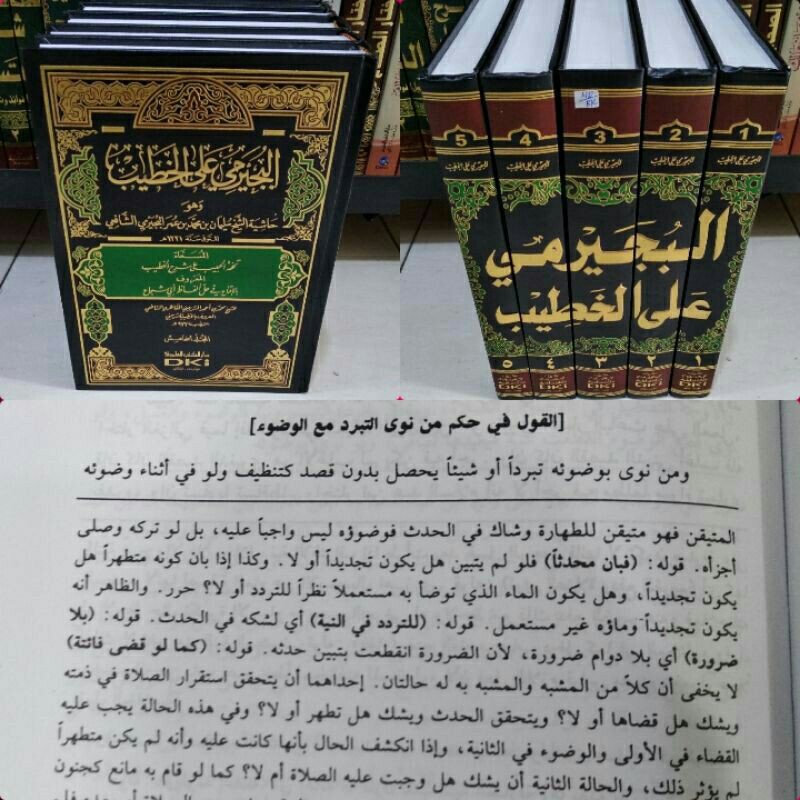 البجيرمي على الخطيب
وهو
حاشية الشيخ سليمان بن محمد بن عمر البجيرمي الشافعي
المتوفى سنة ١٢٢١هـ
المسماة
تحفة الحبيب على شرح الخطيب
المعروف
بالإقناع في حل ألفاظ أبي شجاع
المجلد الخامس
دار الكتب العلمية
DKi
5 4 3 2 1
البجيرمي على الخطيب البجيرمي على الخطيب البجيرمي على الخطيب البجيرمي على الخطيب البجيرمي على الخطيب
البُجَيرمي
عَلى الخَطِيب
٥ ٤ ٣ ٢ ١
DKi DKi DKi DKi DKi
[القول في حكم من نوى التبرد مع الوضوء]
ومن نوى بوضوئه تبرداً أو شيئاً يحصل بدون قصد كتنظيف ولو في أثناء وضوئه
المتيقن فهو متيقن للطهارة وشاك في الحدث فوضوؤه ليس واجباً عليه، بل لو تركه وصلى
أجزأه. قوله: (فبان محدثاً) فلو لم يتبين هل يكون تجديداً أو لا. وكذا إذا بان كونه متطهراً هل
يكون تجديداً، وهل يكون الماء الذي توضأ به مستعملاً نظراً للتردد أو لا؟ حرر. والظاهر أنه
يكون تجديداً وماؤه غير مستعمل. قوله: (للتردد في النية) أي لشكه في الحدث. قوله: (بلا
ضرورة) أي بلا دوام ضرورة، لأن الضرورة انقطعت بتبين حدثه. قوله: (كما لو قضى فائتة)
لا يخفى أن كلاً من المشبه والمشبه به له حالتان. إحداهما أن يتحقق استقرار الصلاة في ذمته
ويشك هل قضاها أو لا؟ ويتحقق الحدث ويشك هل تطهر أو لا؟ وفي هذه الحالة يجب عليه
القضاء في الأولى والوضوء في الثانية، وإذا انكشف الحال بأنها كانت عليه وأنه لم يكن متطهراً
لم يؤثر ذلك، والحالة الثانية أن يشك هل وجبت عليه الصلاة أم لا؟ كما لو قام به مانع كجنون